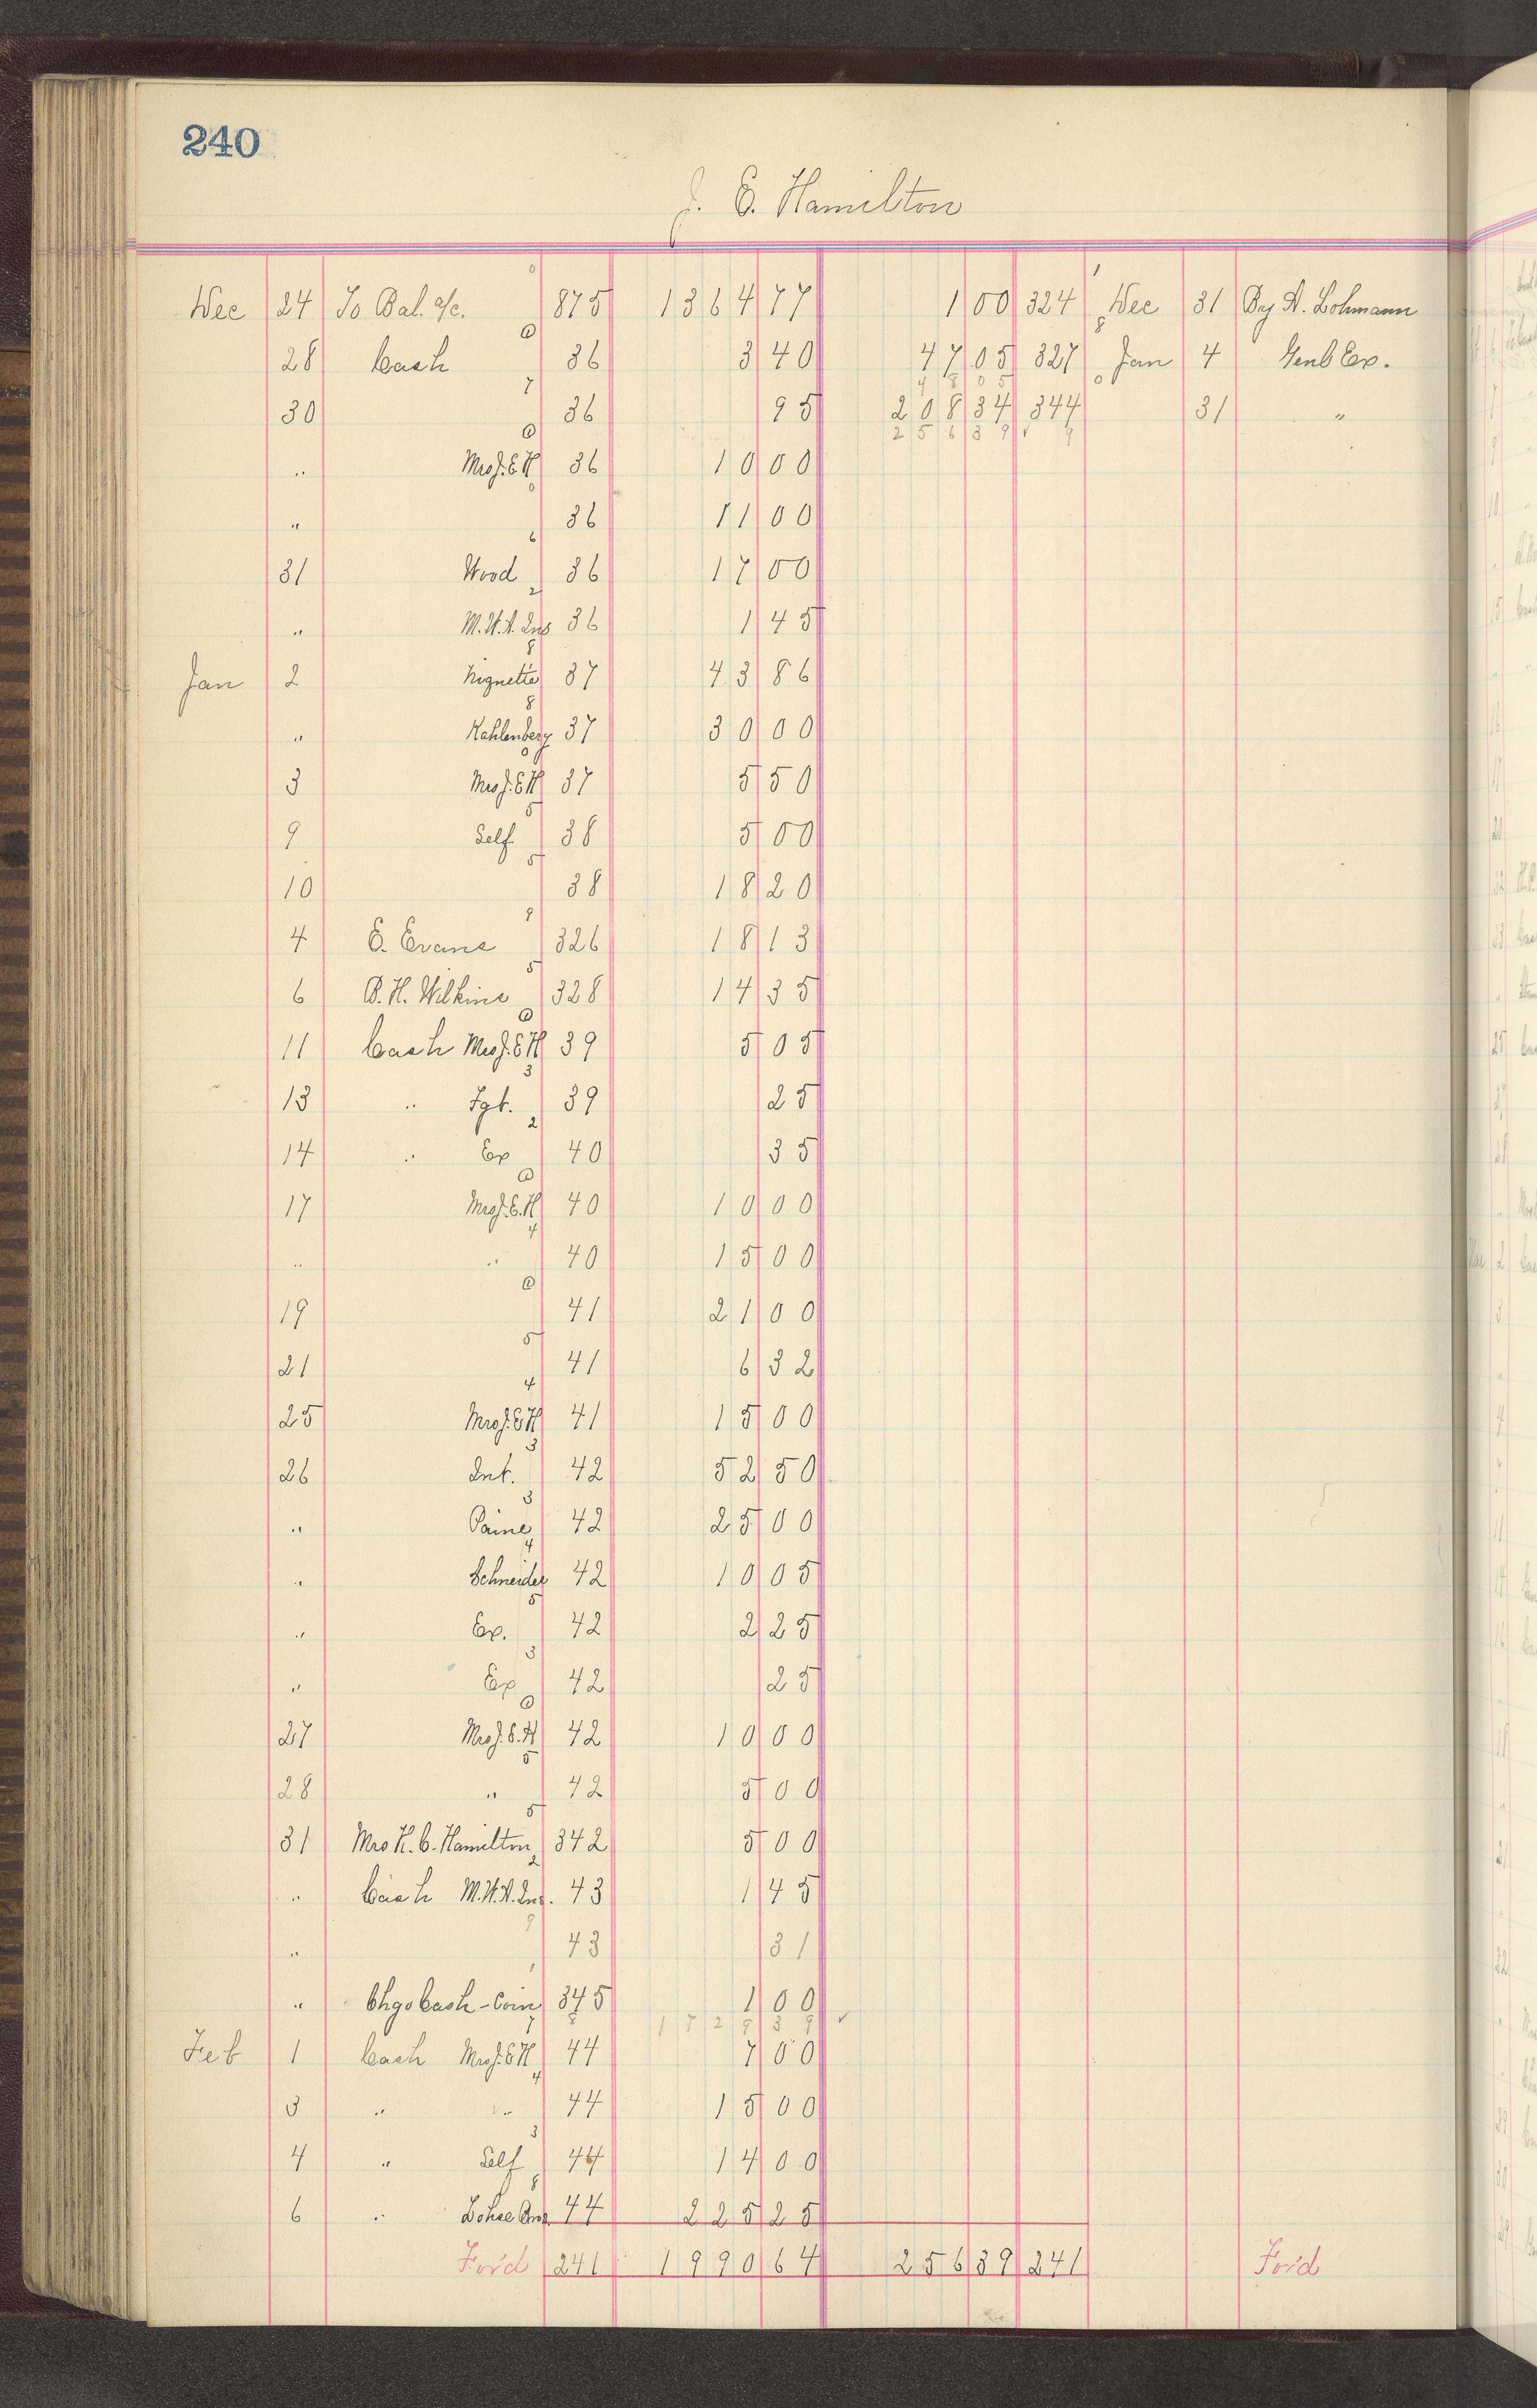 240
J. E. Hamilton
Dec 24 To Bal. a/c. 875 1364 77 1 00 324 Dec 31 By A. Lohmann
28 Cash 36 3 40 47 05 327 Jan 4 Genl Ex.
48 05
30 36 95 208 34 344 31 "
256 39
" Mrs J.E.H 36 10 00
" 36 11 00
31 Wood 36 17 00
" M.W.A. Ins 36 1 45
Jan 2 37 43 86
" Kahlenberg 37 30 00
3 Mrs J.E.H 37 5 50
9 Self 38 5 00
10 38 18 20
4 E. Evans 326 18 13
6 B.H. Wilkins 328 14 35
11 Cash Mrs J.E.H 39 5 05
13 " Fgt. 39 25
14 " Ex 40 35
17 Mrs J.E.H 40 10 00
" " 40 15 00
19 41 21 00
21 41 6 32
25 Mrs J.E.H 41 15 00
26 Int. 42 52 50
" Paine 42 25 00
" Schneider 42 10 05
" Ex. 42 2 25
" Ex 42 25
27 Mrs J.E.H 42 10 00
28 " 42 5 00
31 Mrs H.C. Hamilton 342 5 00
" Cash M.W.A. Ins. 43 1 45
" 43 31
" Chgo Cash - Coin 345 1 00
1729 39
Feb 1 Cash Mrs J.E.H 44 7 00
3 " " 44 15 00
4 " Self 44 14 00
6 " 44 225 25
Ford 241 1990 64 256 39 241 Ford